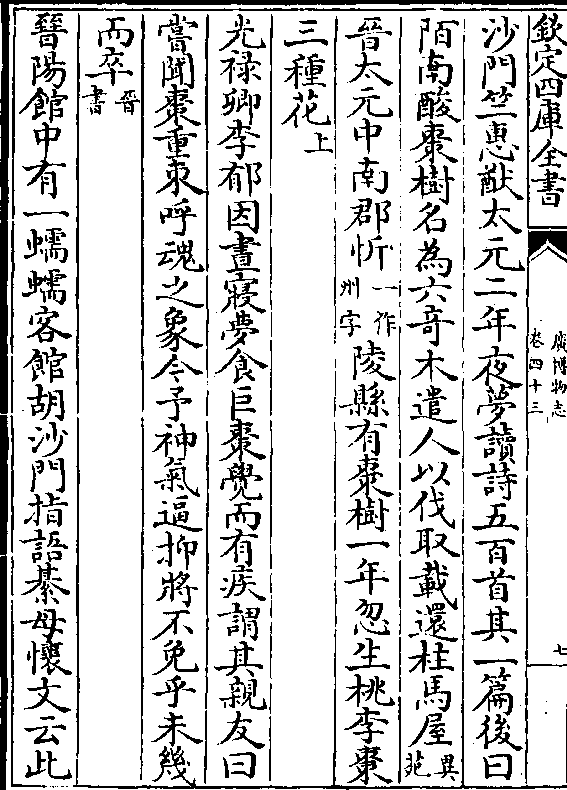 欽定四庫全書
廣博物志
卷四十三
七
沙門竺惠猷太元二年夜夢讀詩五百首其一篇後曰
陌南酸棗樹名為六奇木遣人以伐取載還柱馬屋異苑
晉太元中南郡忻一作州字陵縣有棗樹一年忽生桃李棗
三種花上
光禄卿李郁因晝寢夢食巨棗覺而有疾謂其親友曰
嘗聞棗重朿呼魂之象今予神氣逼抑將不免乎未幾
而卒晉書
晉陽館中有一蠕蠕客館胡沙門指語綦母懷文云此